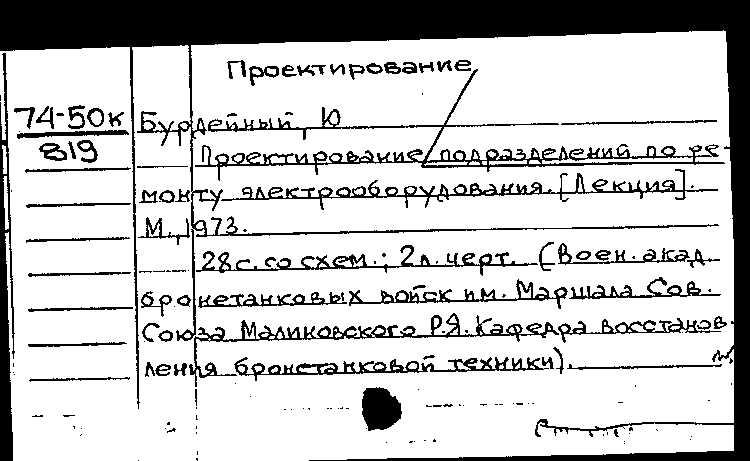 Проектирование
74-50к
819
Бурдейный, Ю
Проектирование подразделений по ре-
монту электрооборудования. [Лекция].
М., 1973.
28с. со схем.; 2л. черт. (Воен. акад.
бронетанковых войск им. Маршала Сов.
Союза Малиновского Р.Я. Кафедра восстанов-
ления бронетанковой техники).